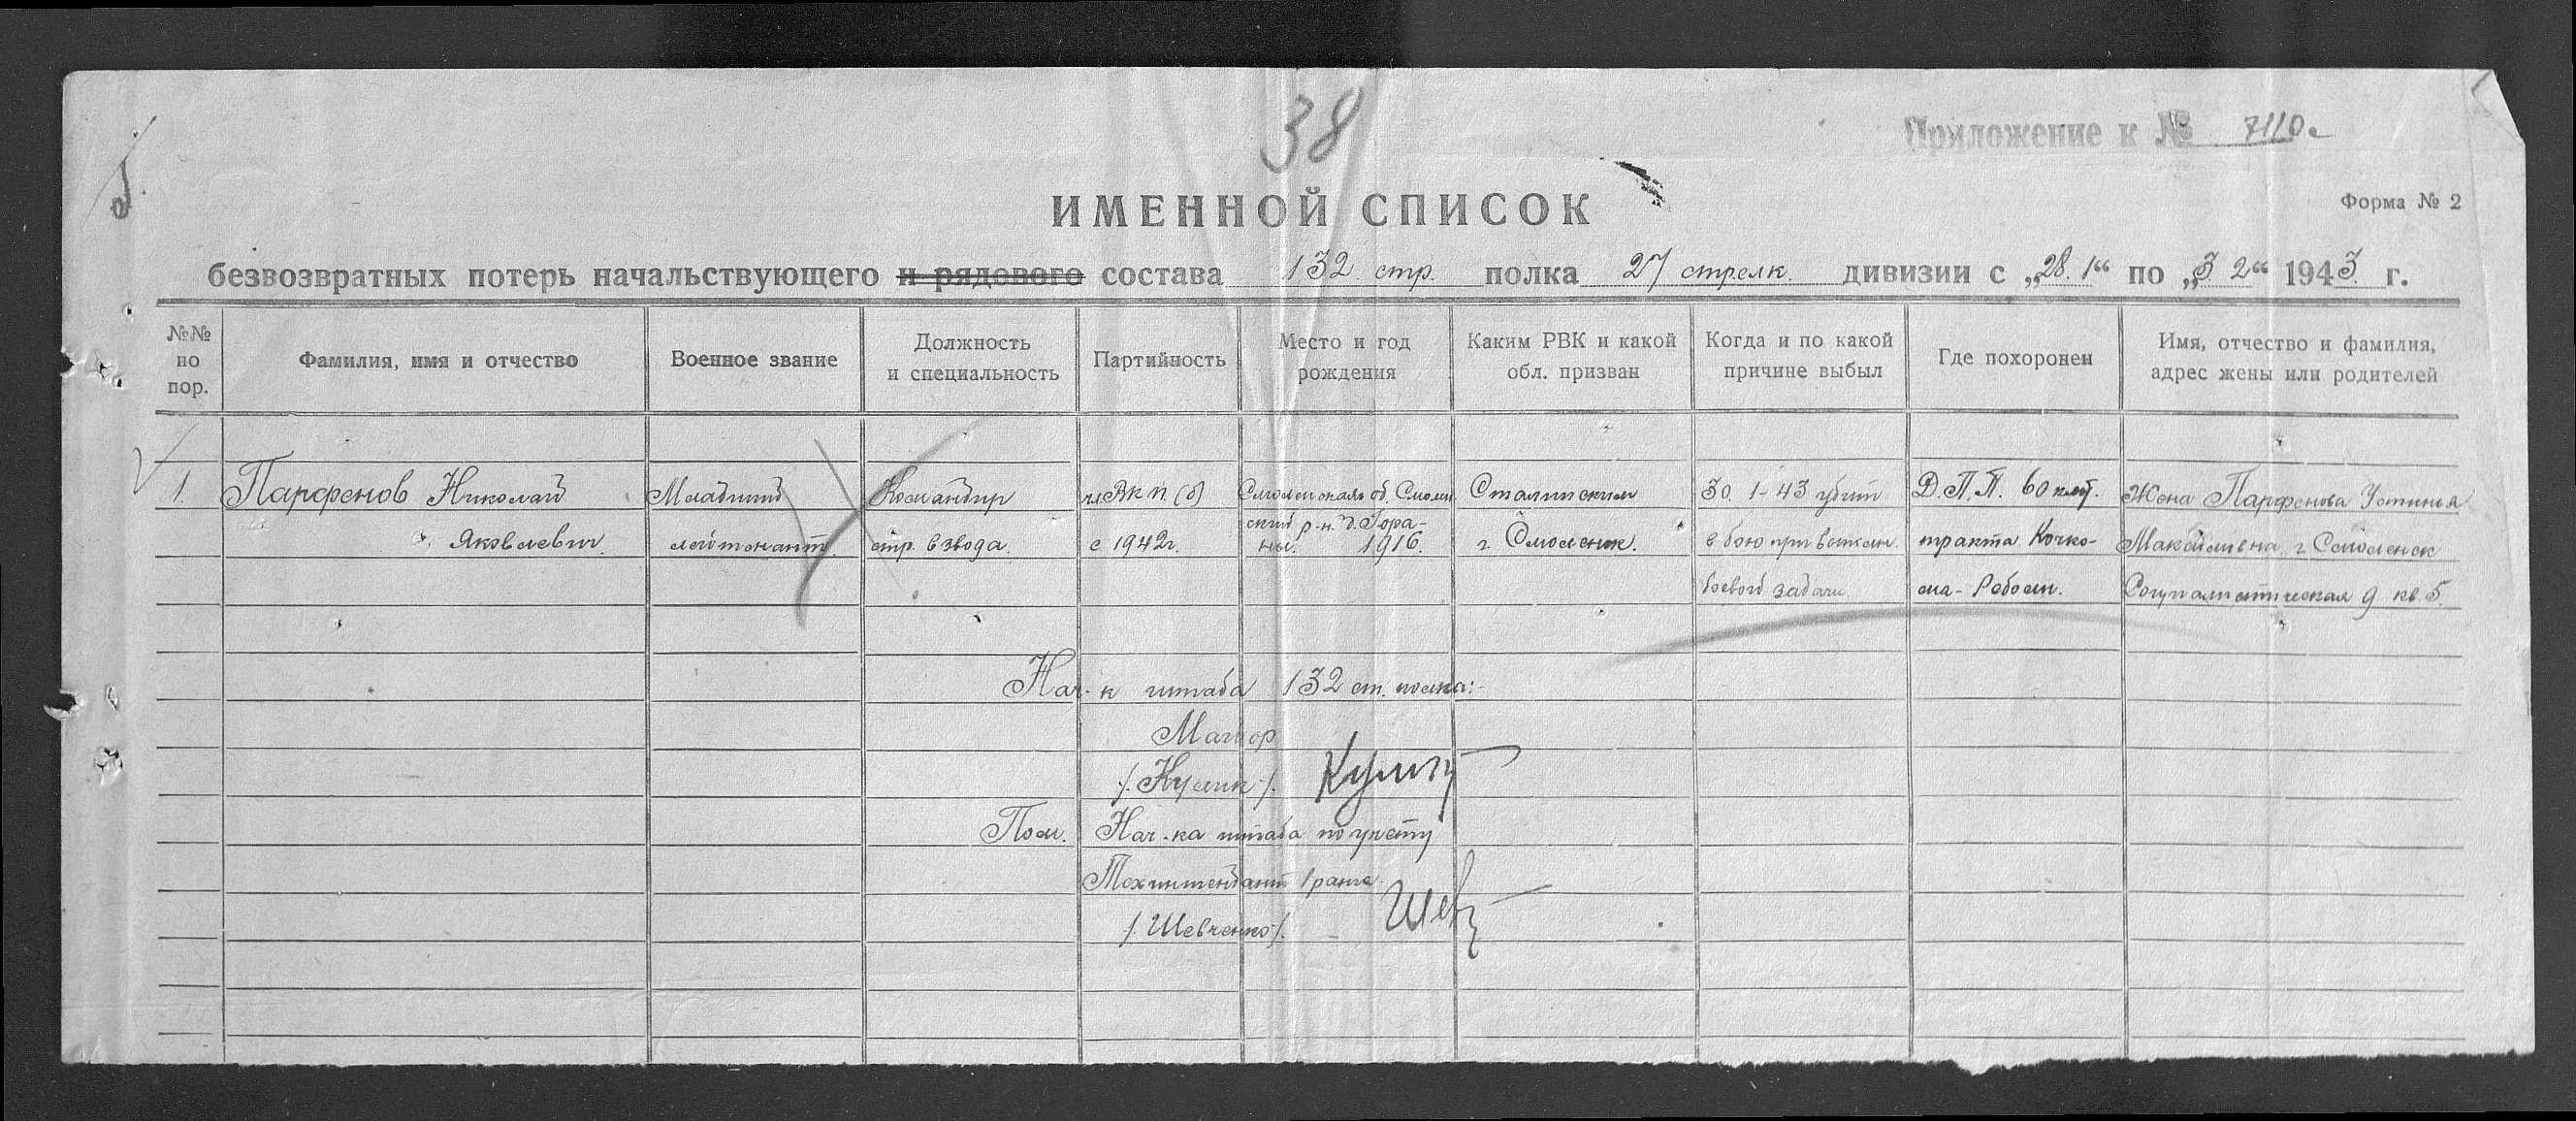 38
Приложение к № 7110с
ИМЕННОЙ СПИСОК
Форма № 2
безвозвратных потерь начальствующего и рядового состава 132 стр. полка 27 стрелк. дивизии с „28.1“ по „3 2“ 1943 г.
№№ по пор.
Фамилия, имя и отчество
Военное звание
Должность и специальность
Партийность
Место и год рождения
Каким РВК и какой обл. призван
Когда и по какой причине выбыл
Где похоронен
Имя, отчество и фамилия, адрес жены или родителей
1 Парфенов Николай Младший Командир чл. ВКП(б) Смоленская об. Смолен. Сталинским 30. 1-43 убит Д.П.П. 60 клм. Жена Парфенова Устинья
ский р-н. д. Гора-
Яковлевич лейтенант стр. взвода. с 1942г. ны. 1916. г. Смоленск. в бою при выполн. тракта Кочко- г. Смоленск
боевой задачи ма-Реболы. Социалистическая 9 кв. 5.
Нач-к штаба 132 ст. полка:-
Майор
/.Кулик/.
Пом. Нач-ка штаба по учету
Техинтендант 1 ранга
/.Шевченко/.